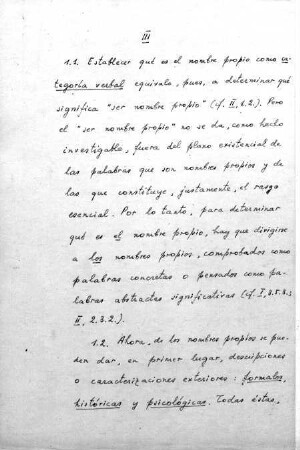 III
1.1. Establecer qué es el nombre propio como ca-
tegoría verbal equivale, pues, a determinar qué
significa "ser nombre propio" (cf. II, 1.2.). Pero
el "ser nombre propio" no se da, como hecho
investigable, fuera del plano existencial de
las palabras que son nombres propios y de
las que constituye, justamente, el rasgo
esencial. Por lo tanto, para determinar
qué es el nombre propio, hay que dirigirse
a los nombres propios, comprobados como
palabras concretas o pensados como pa-
labras abstractas significativas (cf. I, 3.5.3.;
II, 2.3.2.).
1.2. Ahora, de los nombres propios se pue-
den dar, en primer lugar, descripciones
o caracterizaciones exteriores: formales,
históricas y psicológicas. Todas éstas,